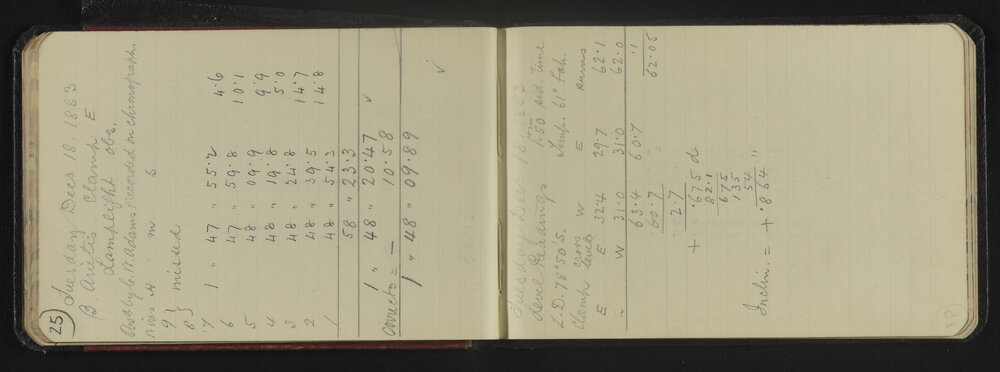 25
Tuesday Decr 18 - 1883
β Arietis Clamp E
Lamplight obs.
Obs by C. W. Adams & recorded on chronograph.
wires H m s
9 } missed
8
7 1 " 47 " 55.2 4.6
6 47 " 59.8 10.1
5 48 " 09.9 9.9
4 48 " 19.8 5.0
3 48 " 24.8 14.7
2 48 " 39.5 14.8
1 48 " 54.3
58 " 23.3
1 " 48 " 20.47 ✓
Corrctn = — 10.58
1 " 48 " 09.89
✓
Tuesday Dec 18 1883
Level Readings 1.50 sid. time
Z.D. 78°50'S. Temp. 61° Fah.
Clamp cross level W E sums
E E 32.4 29.7 62.1
~ W 31.0 31.0 62.0
63.4 60.7 "
60.7 62.05
2.7
+ .675 d
82.1
675
135
54
Inclin. = + .864 "